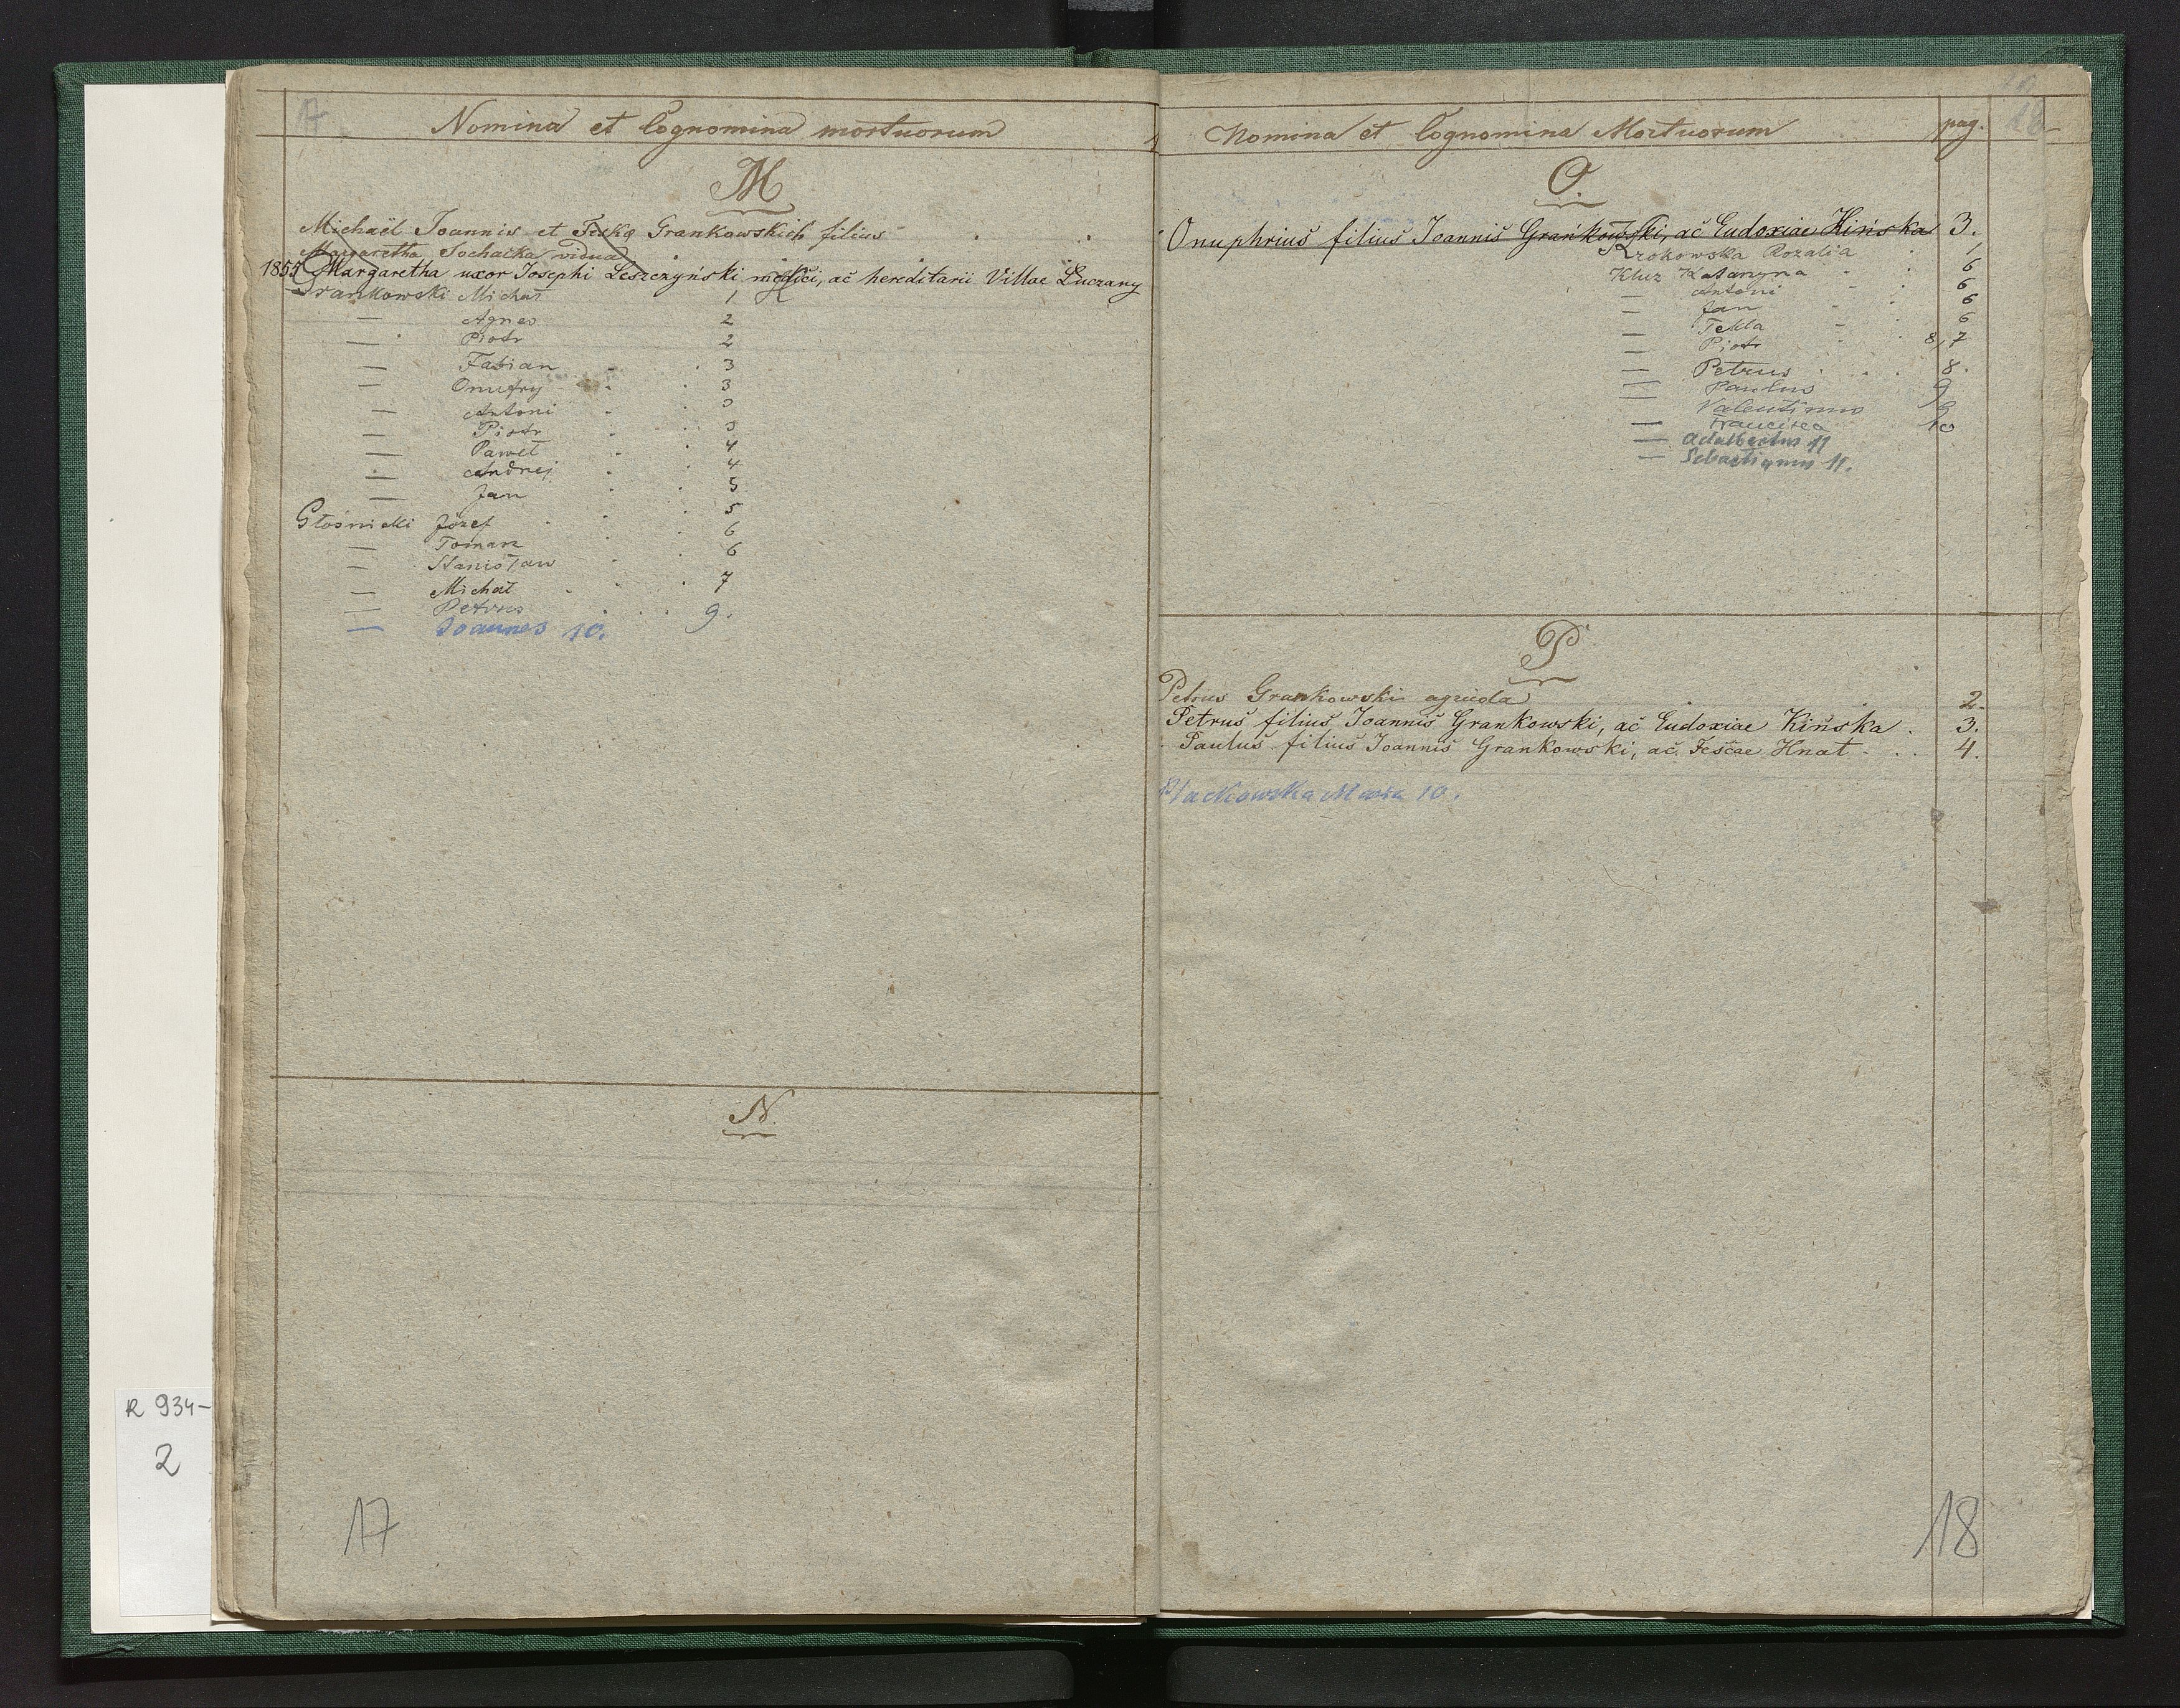 17
Nomina et Cognomina mortuorum
M
Michaël Joannis et Feska Grankowskich filius
Margaretha Sochacka vidua
1854 Margaretha uxor Josephi Leszczyński medici, ač hereditarii Villae Łuczany
Grankowski Michał 1
— Agnes 2
— Piotr 2
— Fabian 3
— Onufry 3
— Antoni 3
— Piotr 3
— Paweł 4
— Andrzej 4
— Jan 5
Głośnicki Józef 5
— Tomasz 6
— Stanisław 6
— Michał 7
— Petrus 9.
— Joannes 10.
N.
17
R 934-
2
Nomina et Cognomina Mortuorum pag. 18
O.
Onuphrius filius Joannis Grankowski, ač Eudoxiae Kińska 3.
Krokowska Rozalia 1
Kluz Katarzyna 6
— Antoni 6
— Jan 6
— Tekla 6
— Piotr 8,7
— Petrus 8.
— Paulus 9
— Valentinus 9
— Francisca 10
— Adalbertus 11
— Sebastianus 11.
P
Petrus Grankowski agricola 2.
Petrus filius Joannis Grankowski, ač Eudoxiae Kińska 3.
Paulus filius Joannis Grankowski, ač Fescae Hnat 4.
10.
18